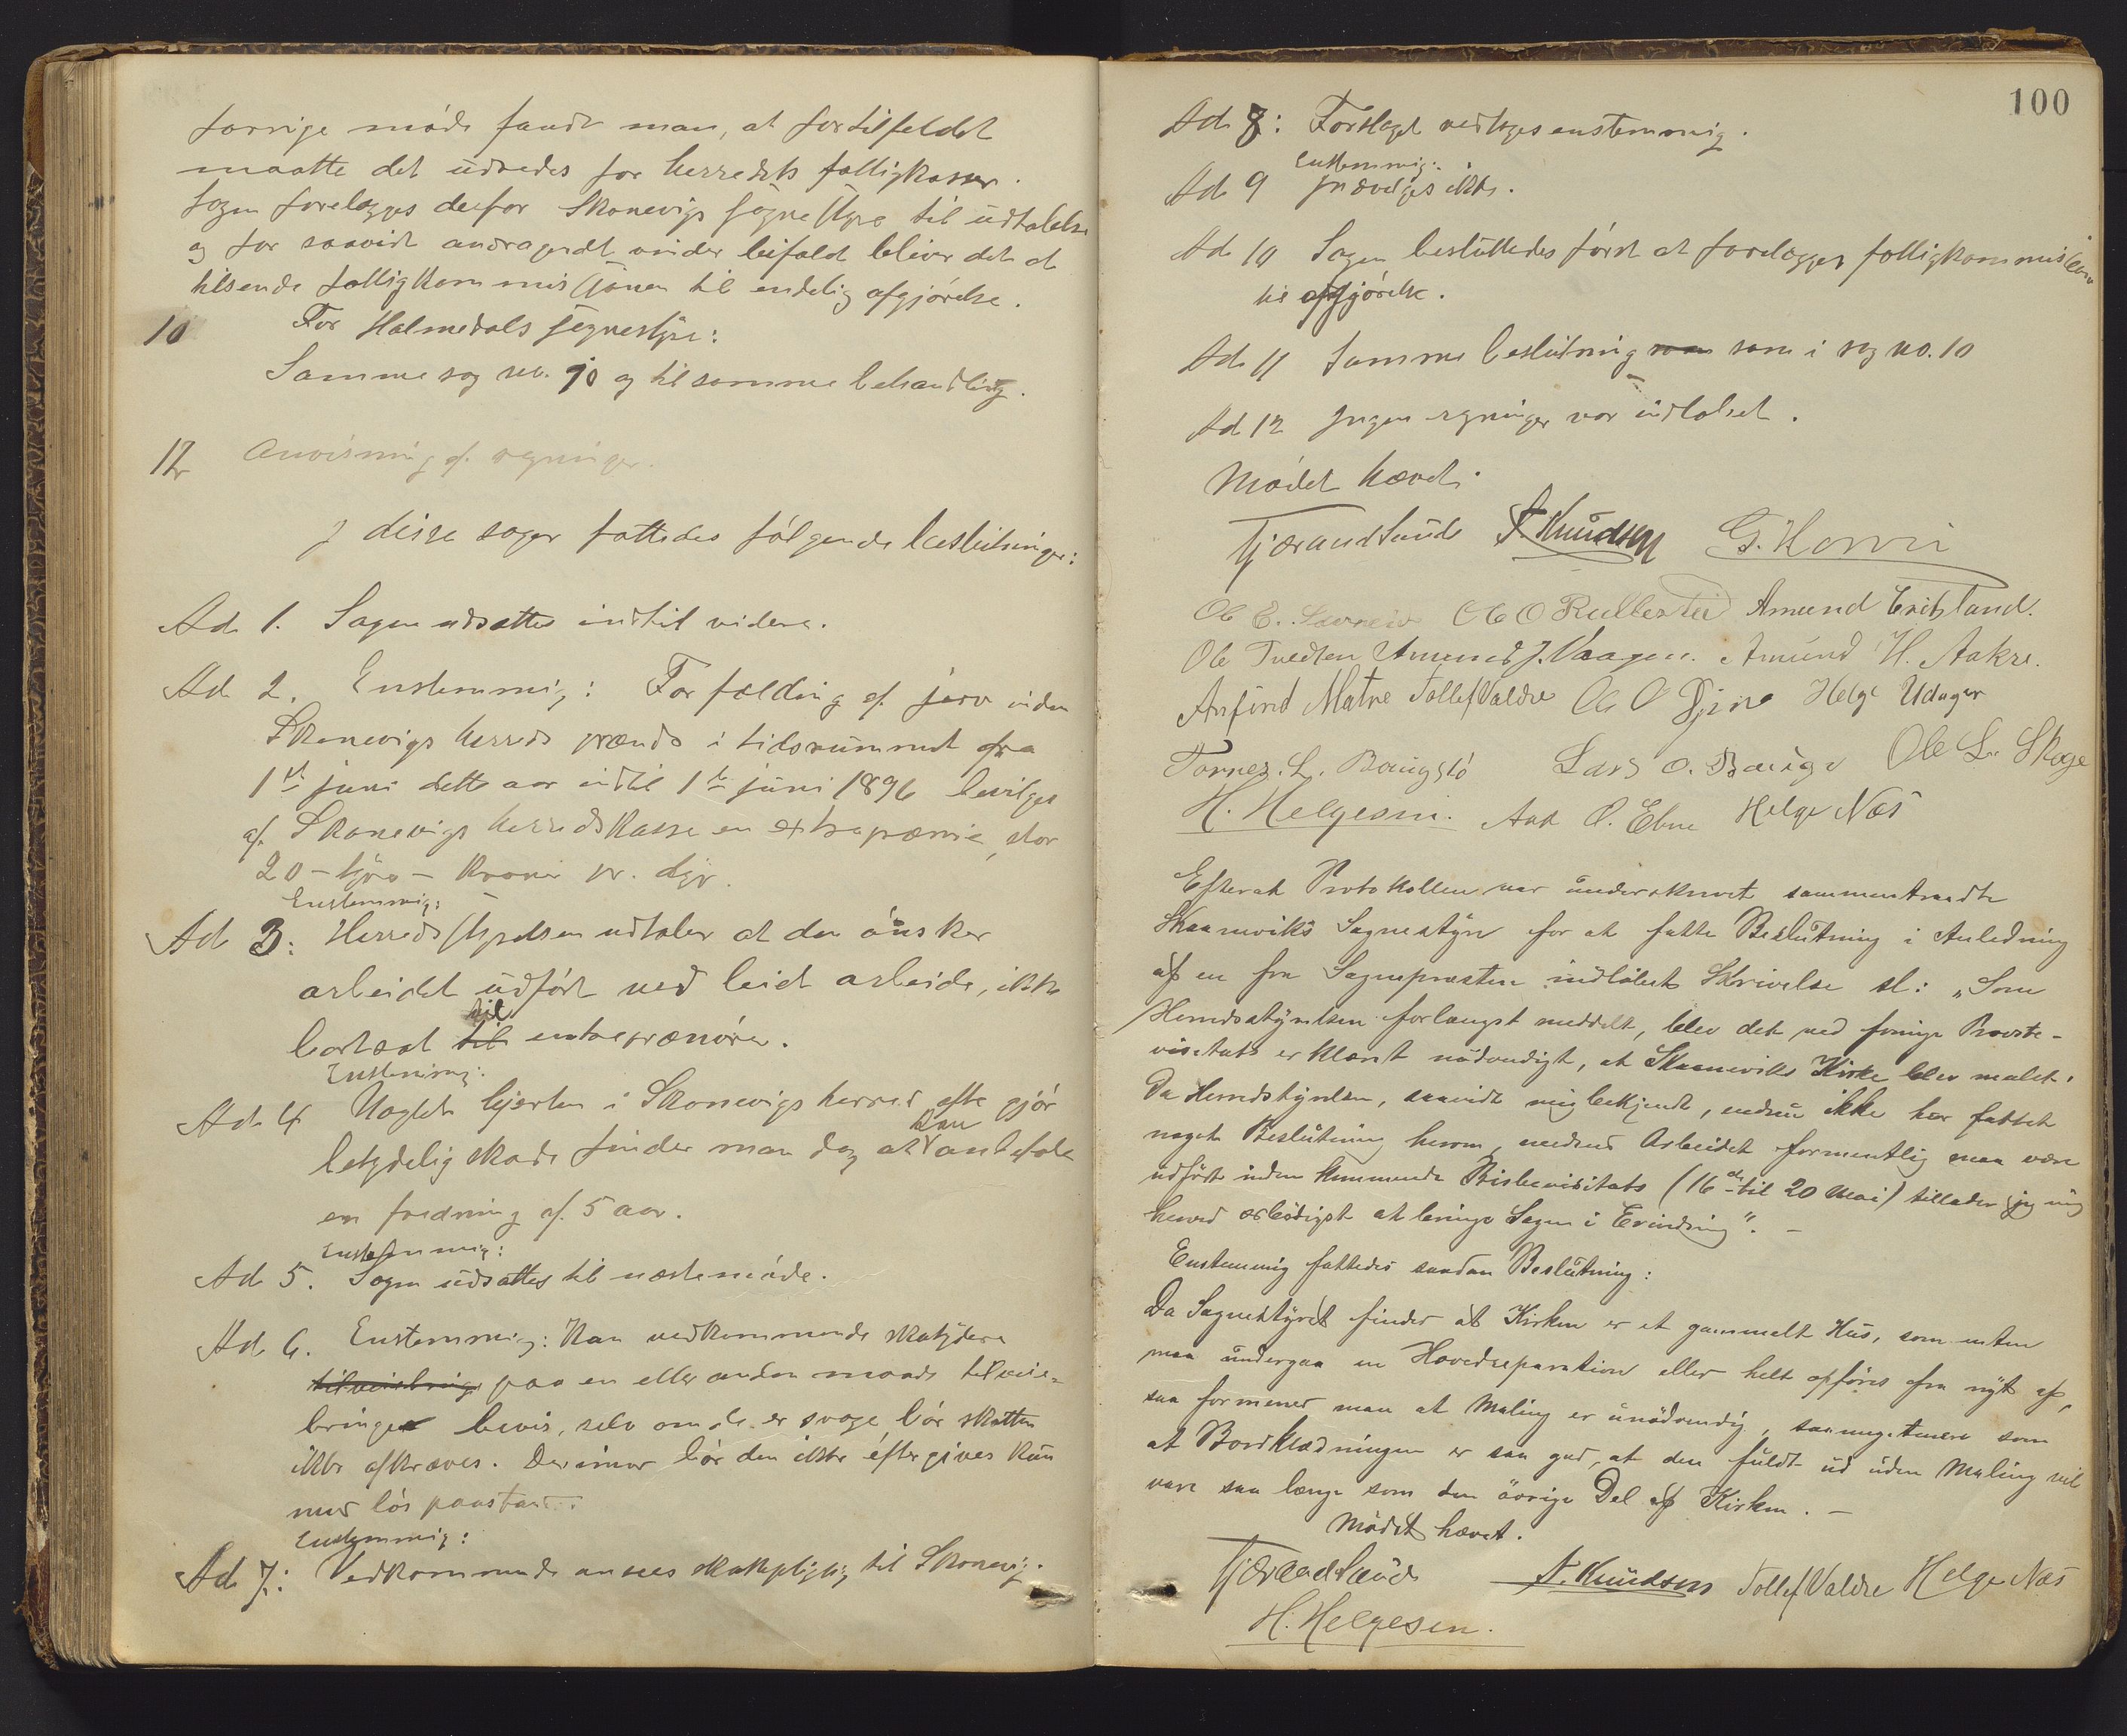 forrige møde fandt man, at for tilfeldet
maatte det udredes for herredets fattigkasser.
Sagen forelægges derfor Skonevigs sognestyre til udtalelse
og for saavidt andragendet vinder bifald bliver det at
tilsende fattigkommissjonen til endelig afgjørelse.
10 For Holmedals sognestyre:
Samme sag no. 10 og til samme behandling.
12 Anvisning af regninger.
I disse sager fattedes følgende beslutninger:
Ad 1. Sagen udsattes indtil videre.
Ad 2. Enstemmig: For fælding af jerv inden
Skonevigs herreds grænds i tidsrummet fra
1ste juni dette aar indtil 1ste juni 1896 bevilges
af Skonevigs herredskasse en extrapræmie, stor
20 – tjve – kroner pr. dyr.
Enstemmig:
Ad 3: Herredsstyrelsen udtaler at den ønsker
arbeidet udført ved leiet arbeide, ikke
til
bortsat til entreprenører.
Enstemmig:
Ad 4 Uagtet hjorten i Skonevigs herred ofte gjør
kan
betydelig skade finder man dog at anbefale
en fredning af 5 aar.
Enstemmig:
Ad 5. Sagen udsattes til næste møde.
Ad 6. Enstemmig: Kan vedkommende skatydere
tilveiebringe paa en eller anden maade tilveie-
bringe bevis, selv om de er svage, bør skatten
ikke afkræves. Derimor bør den ikke eftergives kun
med løs paastand.
Enstemmig:
Ad 7: Vedkommende ansees skatepligtig til Skonevig.
100
Ad 8: Forslaget vedtages enstemmig.
Enstemmig:
Ad 9 Indvælges ikke.
Ad 10 Sagen besluttedes først at forelægges fattigkommissionen
til afgjørelse.
Ad 11 Samme beslutning som i sag no. 10
Ad 12 Ingen regninger var indløbet.
Mødet hævet.
Tjærand Sunde A. Knudsen G. Horvei
Ole E. Sævareid Ole O Rullestad Amund Eritsland.
Ole Tvedten Amund J. Vaagen. Amund H. Aakre.
Anfind Matre Tollef Valdre Ole O Djine Helge Udager
Tornes. L. Baugstø Lars O. Bauge Ole L. Skoge
H. Helgesen. Aad O. Ebne Helge Næs
Efterat Protokollen var underskrevet sammentraadte
Skaaneviks Sognestyre for at fatte Beslutning i Anledning
af en fra Sognepræsten indløbet Skrivelse sl: „Som
Herredsstyrelsen forlængst meddelt, blev det ved forrige Provste-
visitats erklæret nødvendigt, at Skaaneviks Kirke blev malet.
Da Herredstyrelsen, saavidt mig bekjendt, endnu ikke har fattet
noget Beslutning herom, medens Arbeidet formentlig maa være
udført inden kommende Bispevisitats (16de til 20 Mai) tillader jeg mig
herved ærbødigst at bringe Sagen i Erindring". –
Enstemmig fattedes saadan Beslutning:
Da Sognestyret finder at Kirken er et gammelt Hus, som enten
maa undergaa en Hovedreparation eller helt opføres fra nyt af,
saa formener man at Maling er unødvendig, saameget mere som
at Bordklædningen er saa god, at den fuldt ud uden Maling vil
vare saa længe som den øvrige Del af Kirken. –
Mødet hævet.
Tjærand Sunde A. Knudsen Tollef Valdre Helge Næs
H. Helgesen.